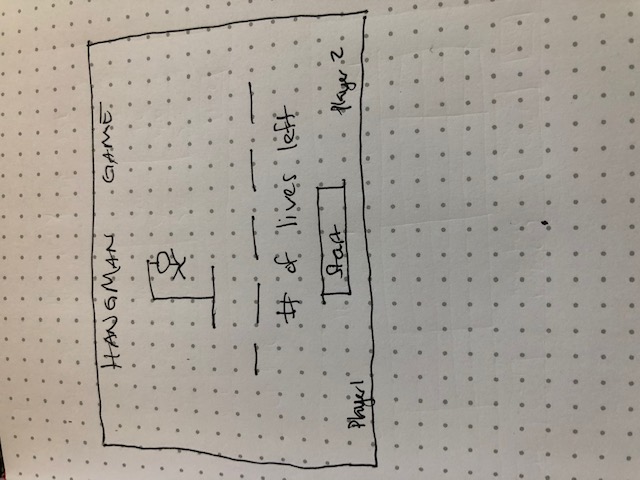 HANGMAN GAME
# of lives left
Start
Player 1 Player 2